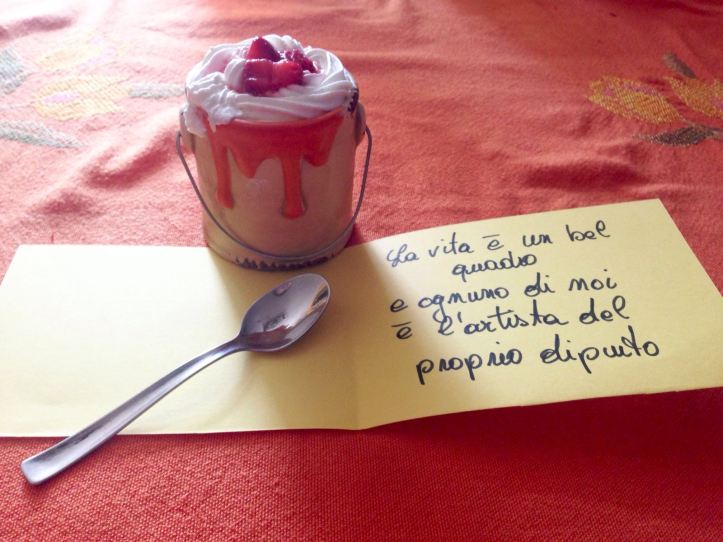 La vita ē un bel
quadro
e ognuno di noi
ē l'artista del
proprio dipinto